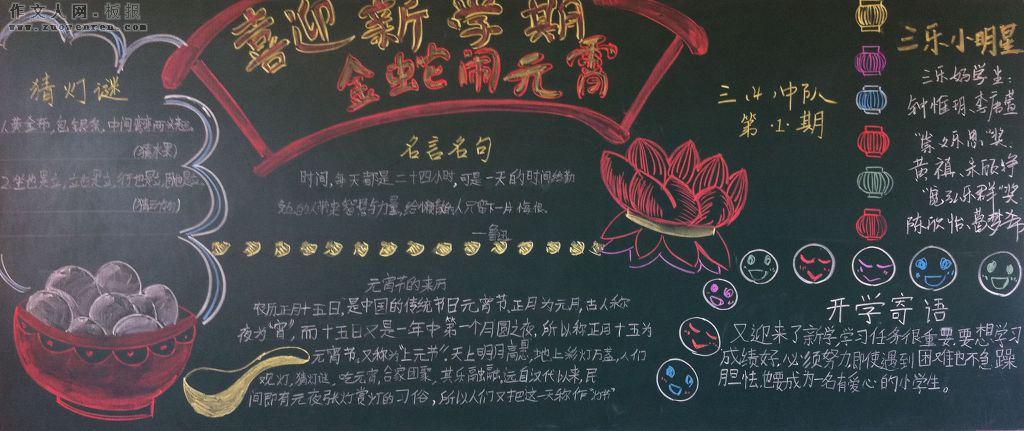 作文人网·板报
www.zuowenren.com
喜迎新学期
金蛇闹元霄
猜灯谜
(猜水果)
2.坐也是立,立也是立,行也是立,
名言名句
时间,每天都是二十四小时,可是一天的时间给勤
勉的人带来智慧与力量,给懒散的人只留下一片悔恨。
——鲁迅
三(4)中队
第(1)期
三乐小明星
三乐好学生:
钟惟玥、李唐萱
"崇文乐思"奖:
黄祺、朱欣铮
"宽弘乐群"奖
陈欣怡、
元宵节的来历
农历正月十五日,是中国的传统节日元宵节,正月为元月,古人称
夜为"宵",而十五日又是一年中第一个月圆之夜,所以称正月十五为
元宵节,又称为"上元节",天上明月高悬,地上彩灯万盏,人们
观灯,猜灯谜,吃元宵,合家团聚,其乐融融,远自汉代以来,民
间即有元夜张灯赏灯的习俗,所以人们又把这一天称作"灯节"
开学寄语
又迎来了新学,学习任务很重要,要想学习
成绩好,必须努力,即使遇到困难也不急躁
胆怯,也要成为一名有爱心的小学生。